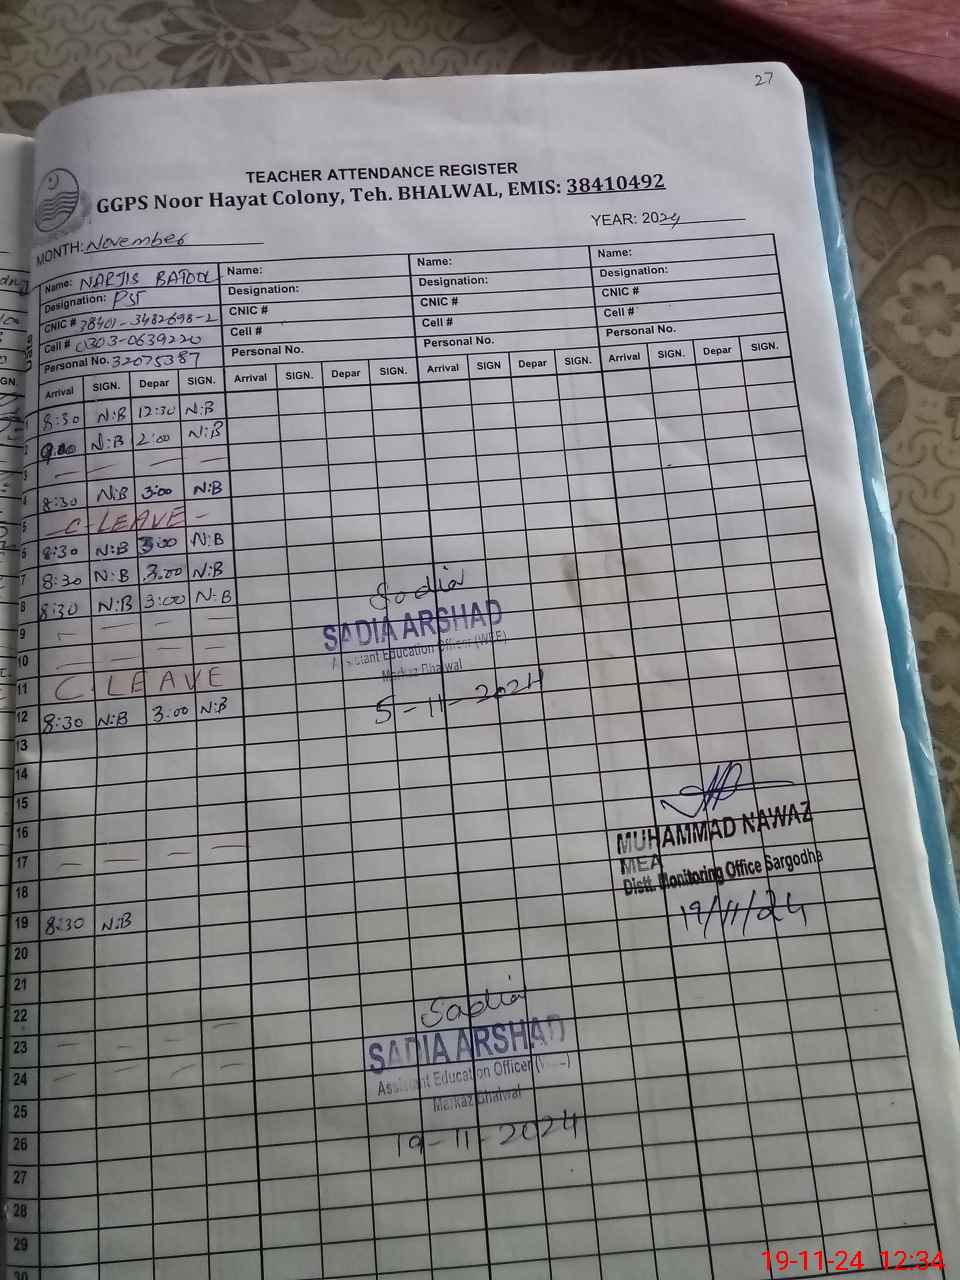 27
TEACHER ATTENDANCE REGISTER
GGPS Noor Hayat Colony, Teh. BHALWAL, EMIS: 38410492
MONTH: November YEAR: 2024
Name: NARJIS BATOOL Name: Name: Name:
Designation: PST Designation: Designation: Designation:
CNIC # 38401-3482698-2 CNIC # CNIC # CNIC #
Cell # 0303-0639220 Cell # Cell # Cell #
Personal No. 32075387 Personal No. Personal No. Personal No.
Arrival SIGN. Depar SIGN. Arrival SIGN. Depar SIGN. Arrival SIGN Depar SIGN. Arrival SIGN. Depar SIGN.
1 8:30 N:B 12:30 N:B
2 9:00 N:B 2:00 N:B
3 — — — —
4 8:30 N:B 3:00 N:B
5 — C-LEAVE -
6 8:30 N:B 3:00 N:B
7 8:30 N:B 3.00 N:B
8 8:30 N:B 3:00 N:B
9 — — — —
10 — — — —
11 C. LEAVE
12 8:30 N:B 3:00 N:B
13
14
15
16
17 — — — —
18
19 8:30 N:B
20
21
22
23 — — — —
24 — — — —
25
26
27
28
29
30
Sadia
SADIA ARSHAD
Assistant Education Officer (WEE)
Markaz Bhalwal
5-11-2024
MUHAMMAD NAWAZ
MEA
Distt. Monitoring Office Sargodha
19/11/24
Sadia
SADIA ARSHAD
Assistant Education Officer
Markaz Bhalwal
19-11-2024
19-11-24 12:34